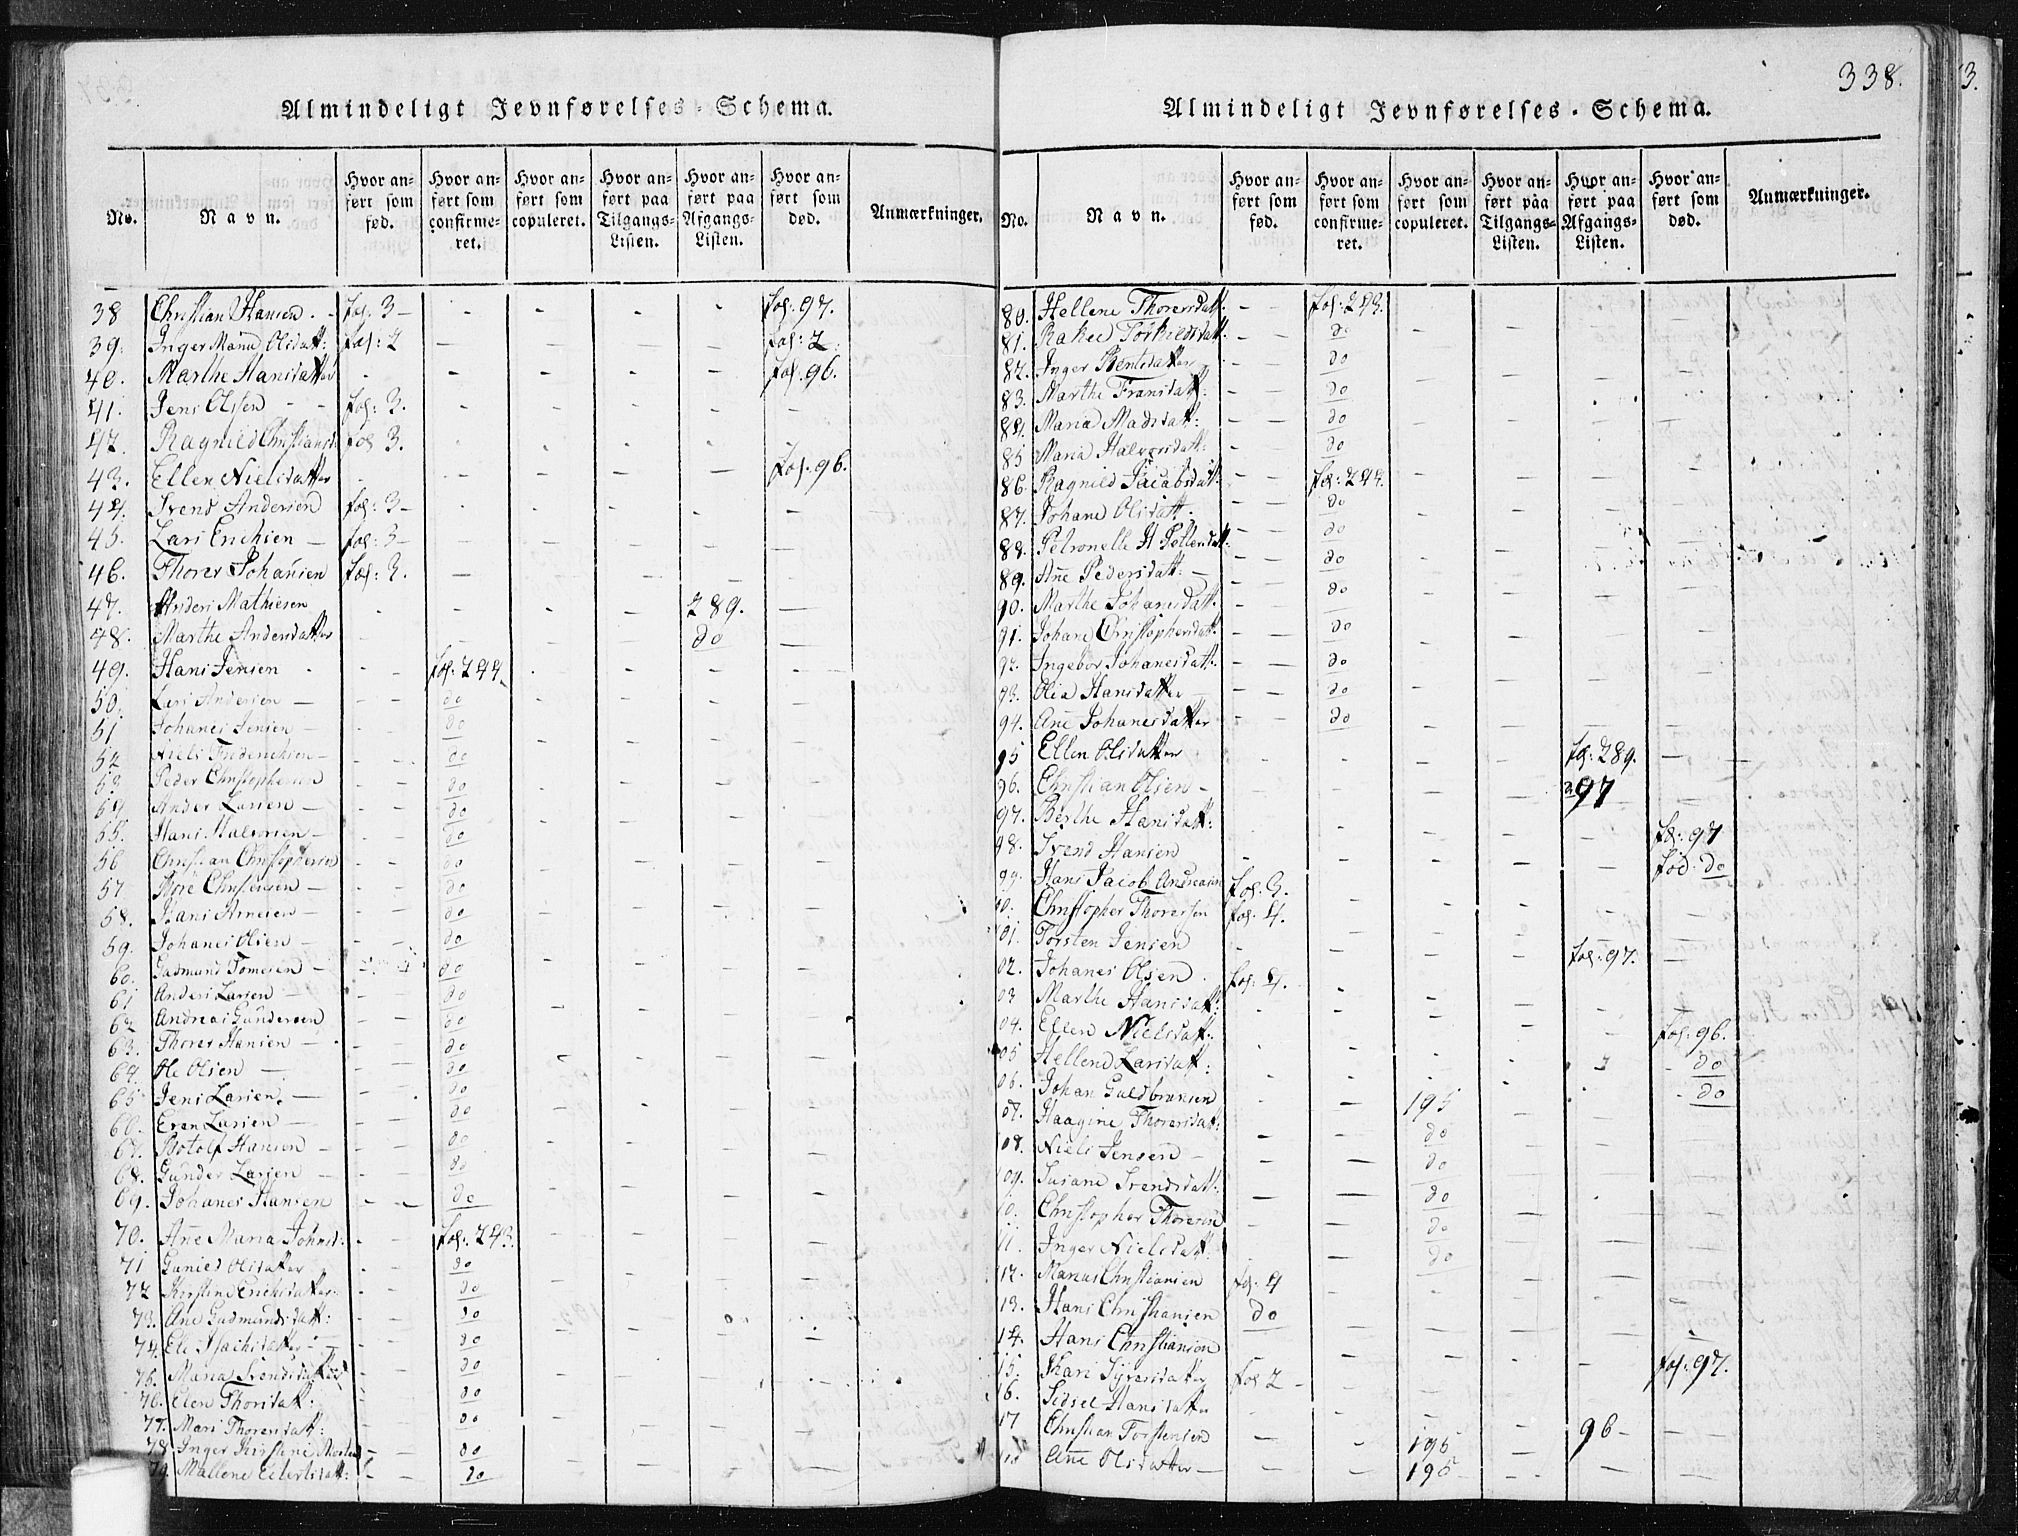 338.
Almindeligt Jevnførelses-Schema.
No. Navn. Hvor anført som fød. Hvor anført som confirmeret. Hvor anført som copuleret. Hvor anført paa Tilgangs-Listen. Hvor anført paa Afgangs-Listen. Hvor anført som død. Anmærkninger.
38 Christian Hansen fol: 3 fol: 97.
39. Inger Maria Olsdatt: fol: 2 fol: 2.
40. Marthe Hansdatter fol. 96.
41. Jens Olsen fol: 3.
42. Ragnild Christiansd fol 3.
43. Ellen Nielsdatter fol. 96.
44. Svend Andersen fol: 3
45. Lars Erichsen fol: 3
46. Thorer Johansen fol: 3.
47. Anders Mathiesen 289.
48. Marthe Andersdatter do
49. Hans Jensen fol: 244
50. Lars Andersen do
51 Johanes Jensen do
52 Niels Friderichsen do
53 Peder Christophersen do
54 Anders Larsen do
55. Hans Halvorsen do
56 Christian Christophersen do
57 Christensen do
58. Hans Arnesen do
59. Johanes Olsen do
60. Gudmund Tomesen do
61 Anders Larsen do
62 Andreas Gundersen do
63. Thorer Hansen do
64. Ole Olsen do
65 Jens Larsen do
66. Even Larsen do
67. Botolf Hansen do
68. Gunder Larsen do
69. Johanes Hansen do
70. Ane Maria Johnsd: fol. 243.
71 Gunild Olsdatter do
72 Kirstine Erichsdatter do
73. Ane Gudmundsdatt: do
74. Eli Isachsdatter do
75. Maria Svendsdatter do
76. Elen Thorsdatt: do
77. Mari Thorersdatt: do
78. Inger Kirstine do
79. Mallene Eilertsdatt: do
Almindeligt Jevnførelses-Schema.
No. Navn. Hvor anført som fød. Hvor anført som confirmeret. Hvor anført som copuleret. Hvor anført paa Tilgangs-Listen. Hvor anført paa Afgangs-Listen. Hvor anført som død. Anmærkninger.
80. Hellene Thorersdatt. fol: 243.
81. Rakel Torkildsdatt. do
82. Inger Bentsdatter do
83. Marthe Fransdatt: do
84. Maria Madsdatt: do
85 Maria Halvorsdatt: do
86. Ragnild Jacobsdatt: fol: 244.
87. Johane Olsdatt. do
88. Petronelle H do
89. Ane Pedersdatt: do
90. Marthe Johanesdatt. do
91. Johane Christophersdatt. do
92. Ingebor Johanesdatt. do
93. Olia Hansdatter do
94. Ane Johanesdatter do
95 Ellen Olsdatter fol: 289.
96. Christian Olsen 297
97. Berthe Hansdatt: fol: 97
98. Svend Hansen fød: do
99. Hans Jacob Andreasen fol: 3.
00. Christopher Thorersen fol: 4.
101. Torsten Jensen fol: 97.
02. Johanes Olsen fol: 4.
03 Marthe Hansdatt:
04. Ellen Nielsdatt: fol: 96.
05 Hellene Larsdatt: do
06. Johan Guldbransen 195 do
107. Haagine Thorersdatt: do
108. Niels Jensen do
109. Susane Svendsdatt: do
10. Christopher Thorersen do
11. Inger Nielsdatt: do
112. Marius Christiansen fol: 4
13. Hans Christiansen do
14. Hans Christiansen
15. Kari Syversdatter fol 2 fol: 97.
16. Sidsel Hansdatter
17 Christian Torstensen 195 96
118 Ane Olsdatter 195